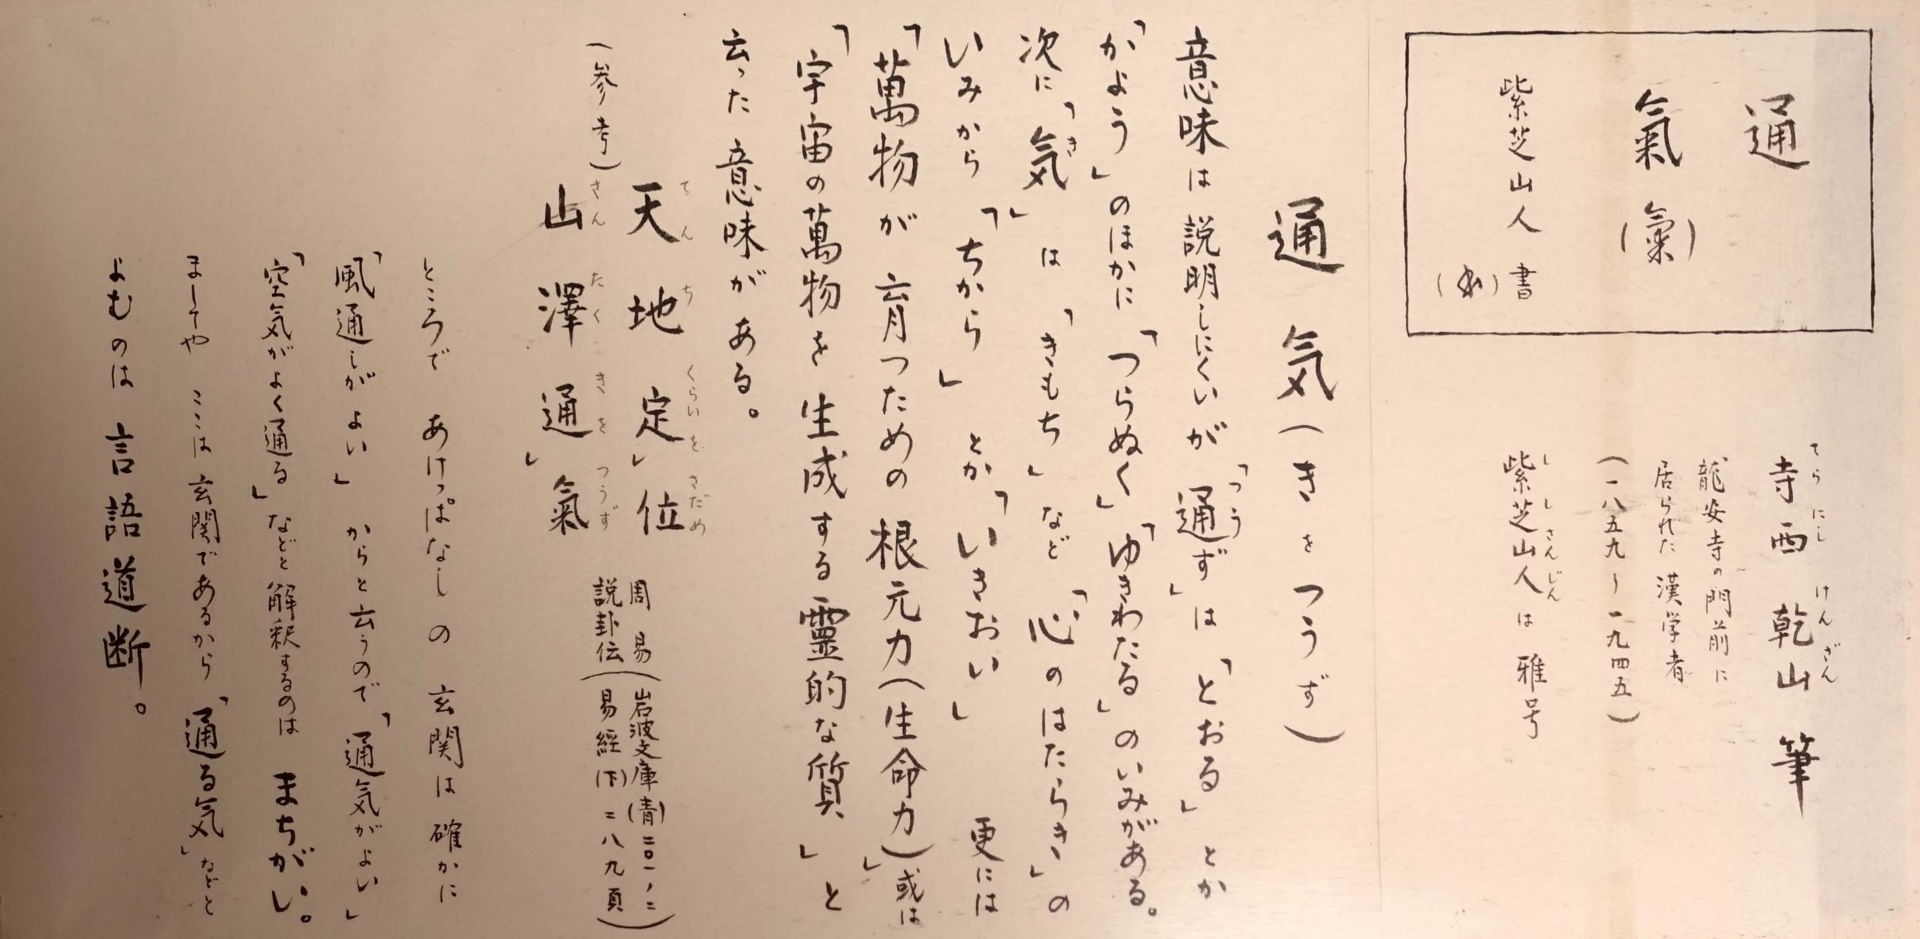 通
氣(氣)
紫芝山人書
寺西乾山筆
てらにし けんざん
龍安寺の門前に
居られた漢学者
(一八五九〜一九四五)
紫芝山人は雅号
ししさんじん
通気(きをつうず)
意味は説明しにくいが「通ず」は「とおる」とか
つう
「かよう」のほかに「つらぬく」「ゆきわたる」のいみがある。
次に「気」は「きもち」など「心のはたらき」の
き
いみから「ちから」とか「いきおい」更には
「萬物が育つための根元力(生命力)」或は
「宇宙の萬物を生成する霊的な質」と
云った意味がある。
(参考)
天地定位
てんちくらいをさだめ
山澤通氣」
さんたくきをつうず
周易
説卦伝
(岩波文庫(青)二〇一ノ二
易經(下)二八九頁)
ところで あけっぱなしの玄関は確かに
「風通しがよい」からと云うので「通気がよい」
「空気がよく通る」などと解釈するのは まちがい。
ましてや ここは玄関であるから「通る気」などと
よむのは言語道断。